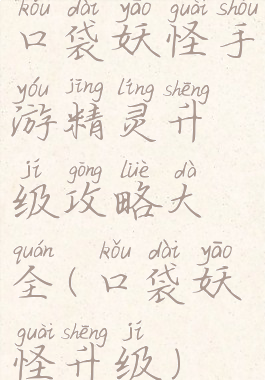 kǒu dài yāo guài shǒu
口袋妖怪手
yóu jīng líng shēng
游精灵升
jí gōng lüè dà
级攻略大
quán kǒu dài yāo
全(口袋妖
guài shēng jí
怪升级)